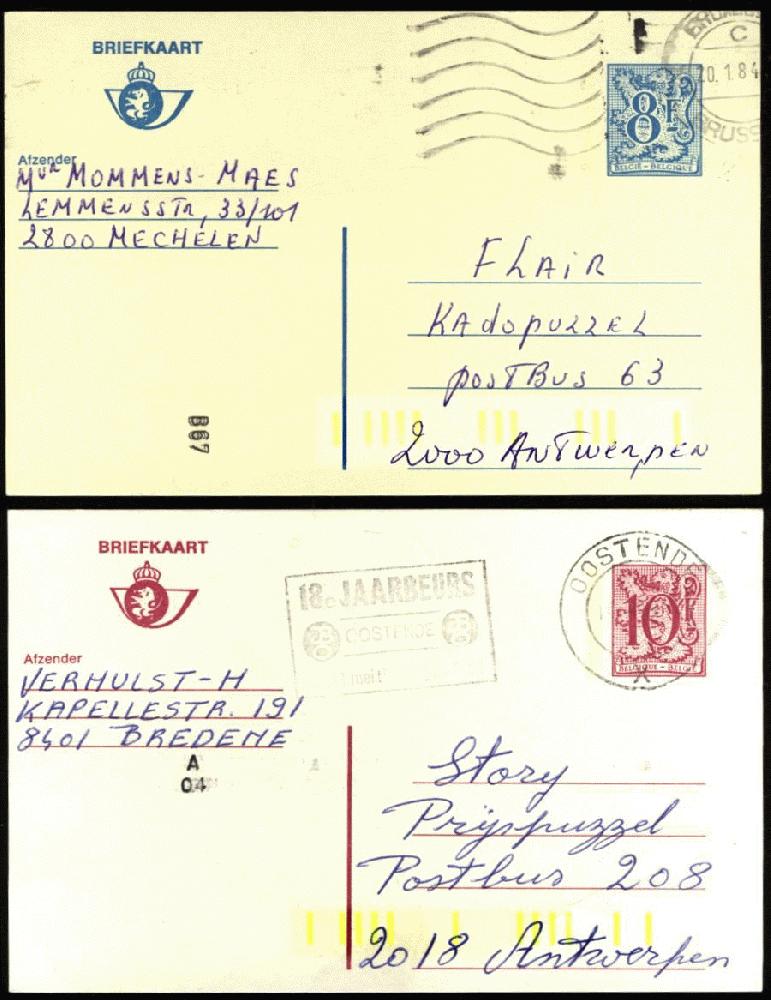 BRIEFKAART
C
20.1.84
BRUSS
8F
BELGIË - BELGIQUE
Afzender
Mvr MOMMENS - MAES
LEMMENSSTR, 33/101
2800 MECHELEN
FLAIR
KAdOPUZZEL
POSTBUS 63
2000 ANTWERPEN
B07
BRIEFKAART
18e JAARBEURS
OOSTENDE
mei
OOSTEND
10F
BELGIQUE - BELGIË
A
Afzender
VERHULST-H
KAPELLESTR. 191
8401 BREDENE
A
04
Story
Prijspuzzel
Postbus 208
2018 Antwerpen